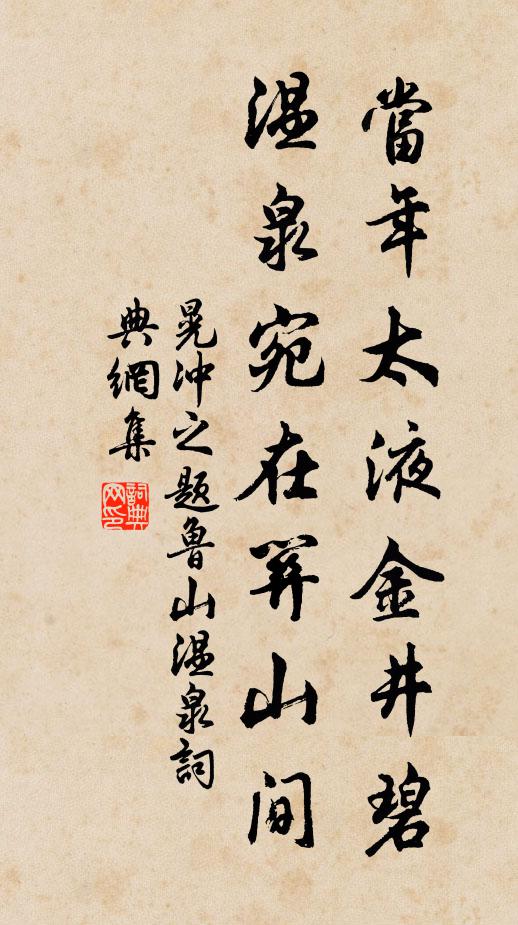 當年太液金井碧
温泉宛在笄山間
晁冲之題魯山温泉詞
典網集
詞典
网印